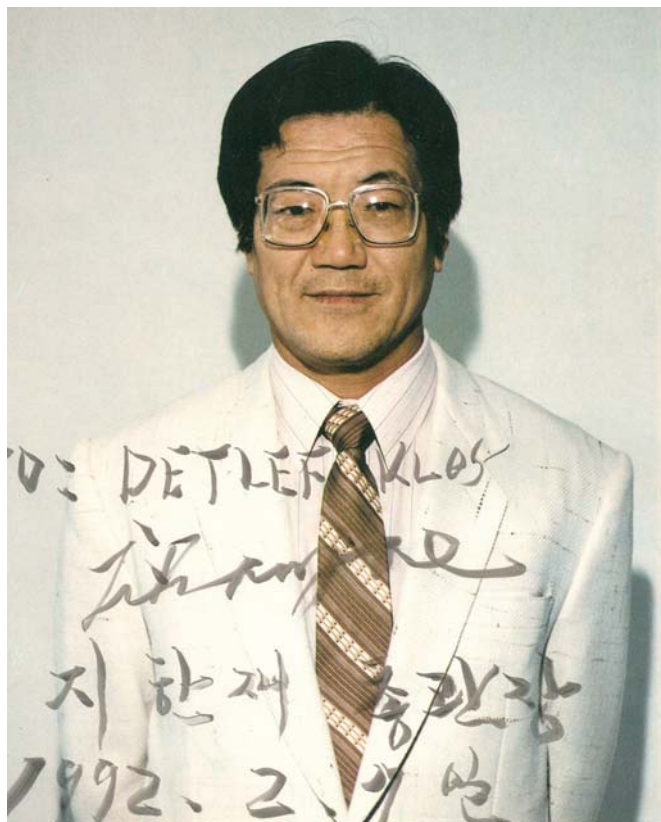 TO: DETLEF KLOS
지 한 재 총관장
1992. 2. 일